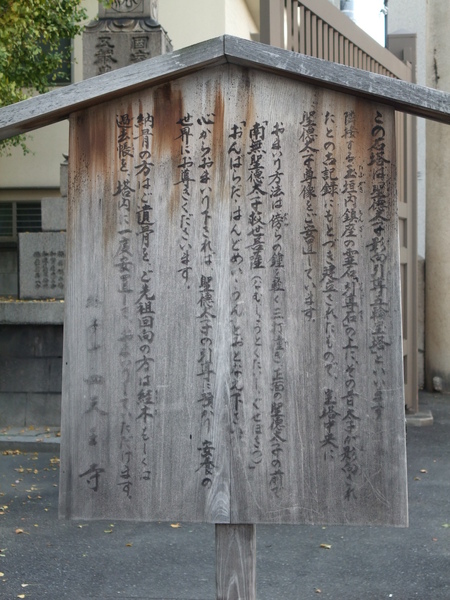 この石塔は聖徳太子影向引導五輪宝塔といいます
隣接する玉垣内鎮座の霊石、引導石の上に、その昔太子が影向され
たとの古記録にもとづき建立されたもので、宝塔中央に
聖徳太子尊像をご安置しています。
おまいり方法は傍らの鐘を軽く三打 正面の聖徳太子の前で
「南無聖徳太子救世菩薩(なむしょうとくたいしくせぼさつ)
「おんはらだ・はんどめい・うん」とおとなえ下さい。
心からおまいり下されば、聖徳太子の引導に預かり、安養の
世界にお導きくださいます。
納骨の方はご遺骨を、ご先祖回向の方は経木もしくは
過去帳を、塔内に一度安置し、おまいりしていただけます。
総本山四天王寺